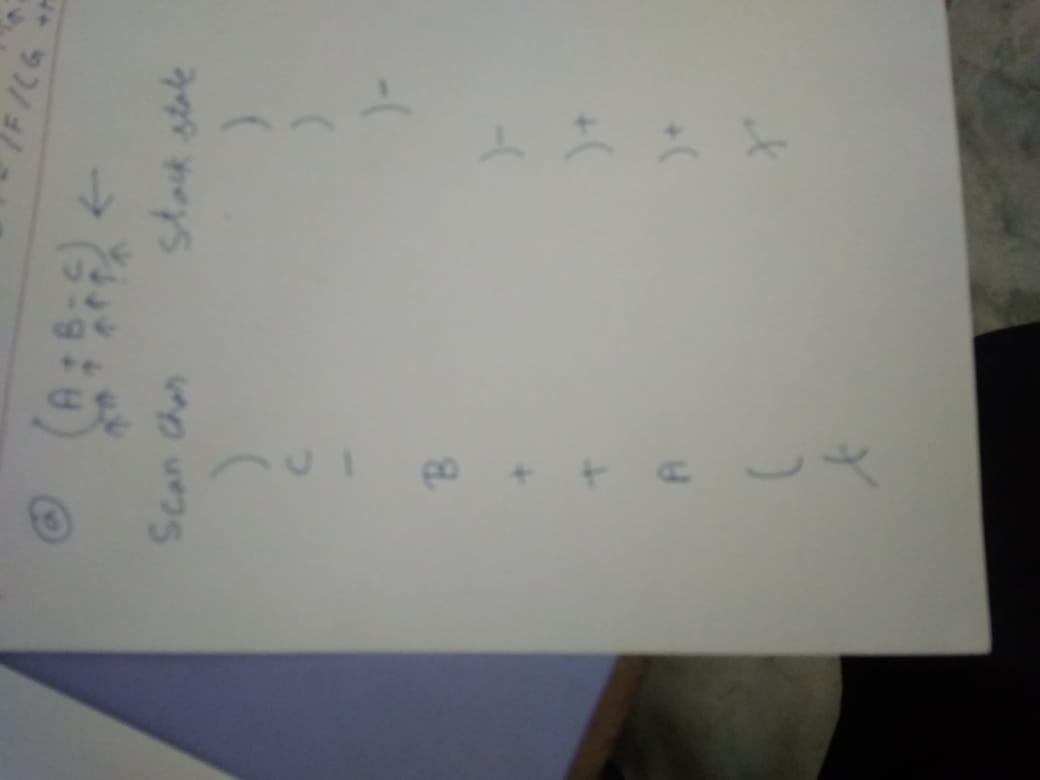 /F/CG +
(a) (A + B - C) ←
↑ ↑ ↑ ↑ ↑ ↑ ↑
Scan Char Stack state
) )
C )
- )-
B
+ )-
+ )+
A )+
(